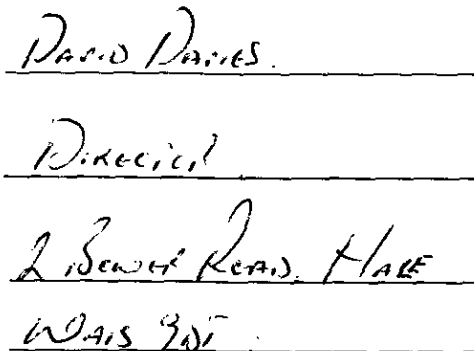 David Davies.
Director
2 Road, Hale
WA15 9DT